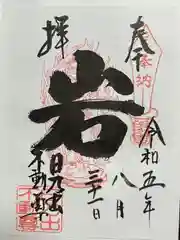 奉
拝
奉納
岩
令和五年
八月
三十一日
不動尊